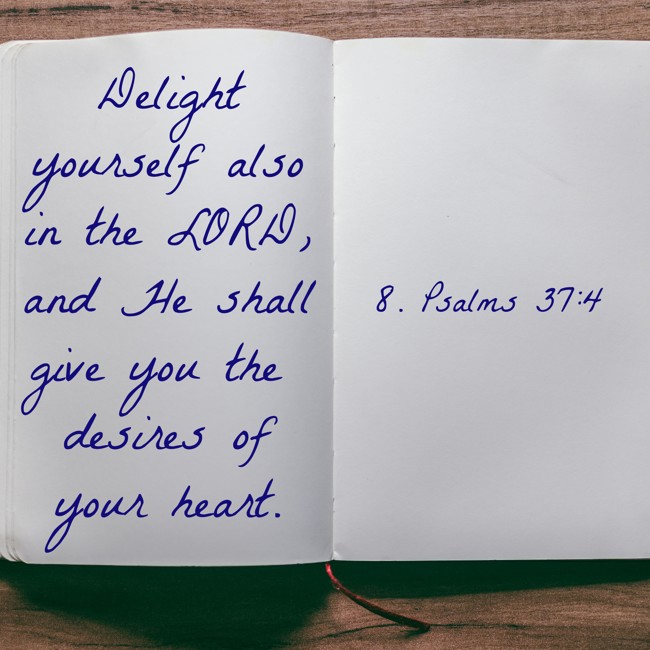 Delight
yourself also
in the LORD,
and He shall
give you the
desires of
your heart.
8. Psalms 37:4